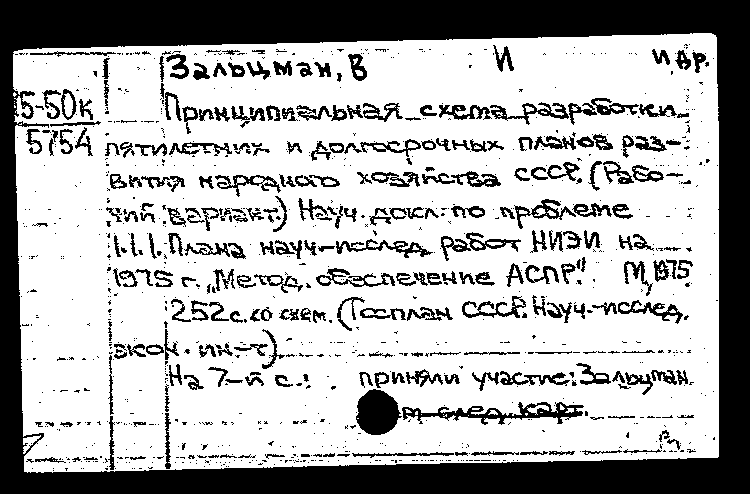 Зальцман, В И и др.
75-50к
5754
Принципиальная схема разработки
пятилетних и долгосрочных планов раз-
вития народного хозяйства СССР. (Рабо-
чий вариант.) Науч. докл. по проблеме
1.1.1. Плана науч.-исслед. работ НИЭИ на
1975 г. „Метод. обеспечение АСПР." М, 1975
252 с. со схем. (Госплан СССР. Науч.-исслед.
экон. ин.-т)
На 7-й с.: приняли участие: Зальцман.
след. карт.